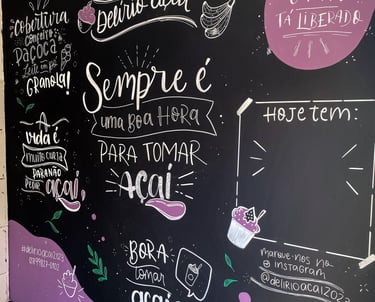 Cobertura
Concreto
Paçoca
Leite em pó
Granola!
Delírio açaí
TÁ LIBERADO
Sempre é
uma boa hora
PARA TOMAR
açaí
HOJE TEM:
A
vida é
muito curta
para não
pedir açaí
#delirioacai2025
BORA
tomar
açaí
marque-nos no
instagram
@delirioacai2025